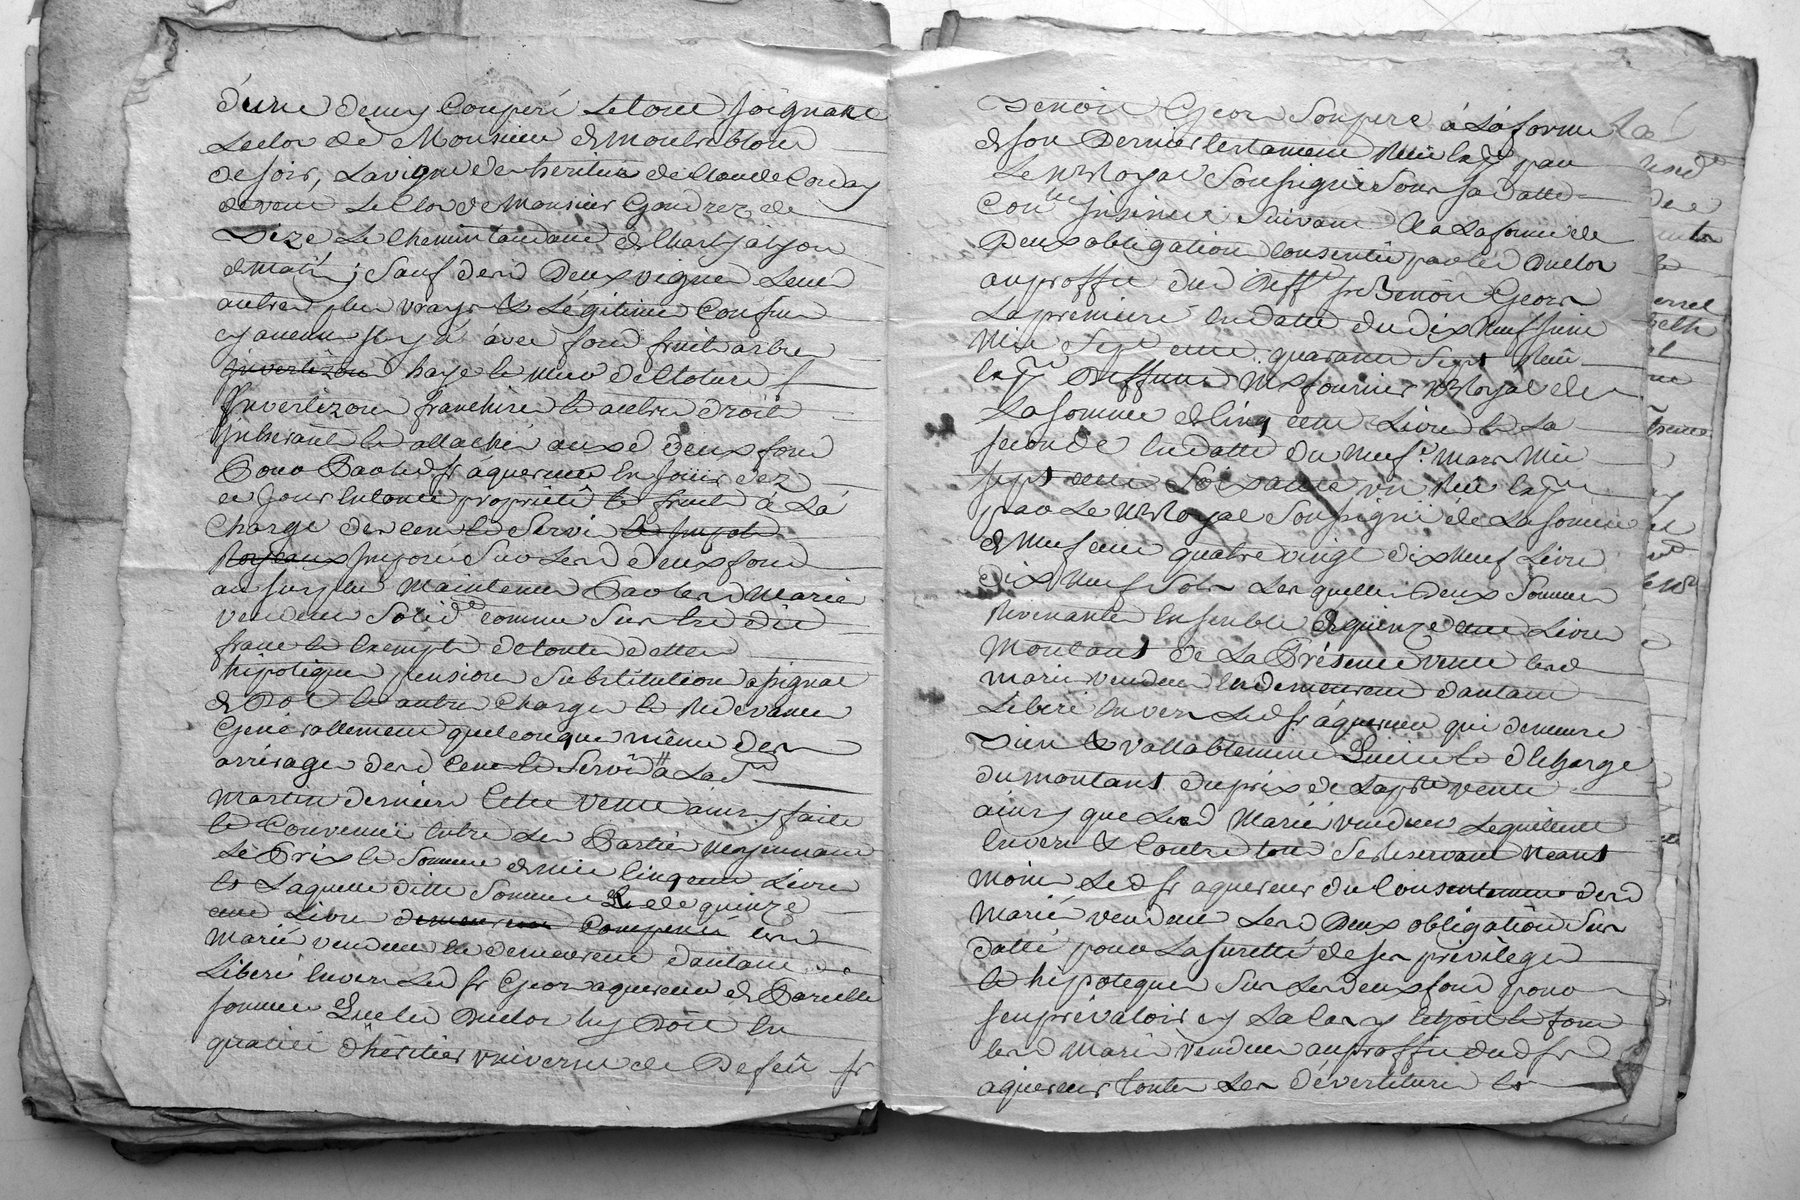 d'une demy Couperé Letout joignant
Leclos de Monsieur de montrblon
de soir, La vigne des heritiers de Claude Corday
devent Le Clos de Monsieur Gaudrez de
Size Le Chemin tendant de Charly à lyon
de matin ; Sauf desd deux vignes Leurs
autres plus vrays & Légitimes Confins
cy aucuns Il y à avec fond fruits arbres
haye et murs de Cloture
Invertizon franchises et autres droits
Inherants et attachés auxd deux fonds
Pour Par led sr aquereur en jouir dez
ce jour en toute proprieté et fruits à La
Charge des cens et Servis et Impots
Royeaux Imposés Sur Lesd deux fonds
au surplus Maintenus Par lesd Mariés
vendeurs Solid comme Sur et dit
franc et exempts de toutes dettes
hipotèques pension Substitution assignat
de Dot et autres Charges et Redevances
Généralement quelconques même des
arrérages desd Cens et Servis à La St
Martin dernière Cette vente ainsy faite
et Convenuë entre Les Parties moyennant
Le Prix et Somme de mil Cinq cents Livres
Laquelle ditte Somme de quinze
cens Livres Compensée lesd
Mariés vendeurs en demeurent d'autant
Liberé envers Led sr Geor aquereur de Pareille
somme Que led Duclos luy Doit en
qualité d'héritier universel de Defeu sr
Benoit Geor Son pere à La forme
de son Dernier testament Reçu par
Le Nre Royal Soussigné Sous sa Datte
Con Insinué Suivant & a La forme de
Deux obligations Consenties par led Duclos
au proffit dud Deff sr Benoit Geor
La premiere en datte du dix Neuf Juin
Mil Sept cent quarante Sept Reçu
Deffunt Me fournier Nre Royal de
La somme de Cinq cens Livres et La
seconde en datte du Neuf Mars Mil
sept cens Soixante un Reçu
par Le Nre Royal Soussigné de La Somme
de Neuf cens quatre vingt dix Neuf Livres
dix Neuf Sols Lesquelles Deux Sommes
Revenantes ensemble de quinze cens Livres
Montant de La Présente vente lesd
mariés vendeurs en demeurent d'autant
Liberé envers Led sr aquereur qui demeure
bien & vallablement Quitte et décharge
du montant du prix de La pnte vente
ainsy que Lesd Mariés vendeurs Le quittent
envers & Contre tous Se Reservant Neant
moins Led sr aquereur du Consentement desd
Mariés vendeurs Lesd Deux obligations Sus
dattés pour La sureté de ses privilèges
et hipoteques Sur Lesd deux fond pour
s'en prévaloir cy La Cas y
lesd Mariés vendeurs au proffit dud sr
aquereur toutes Les dévertiture